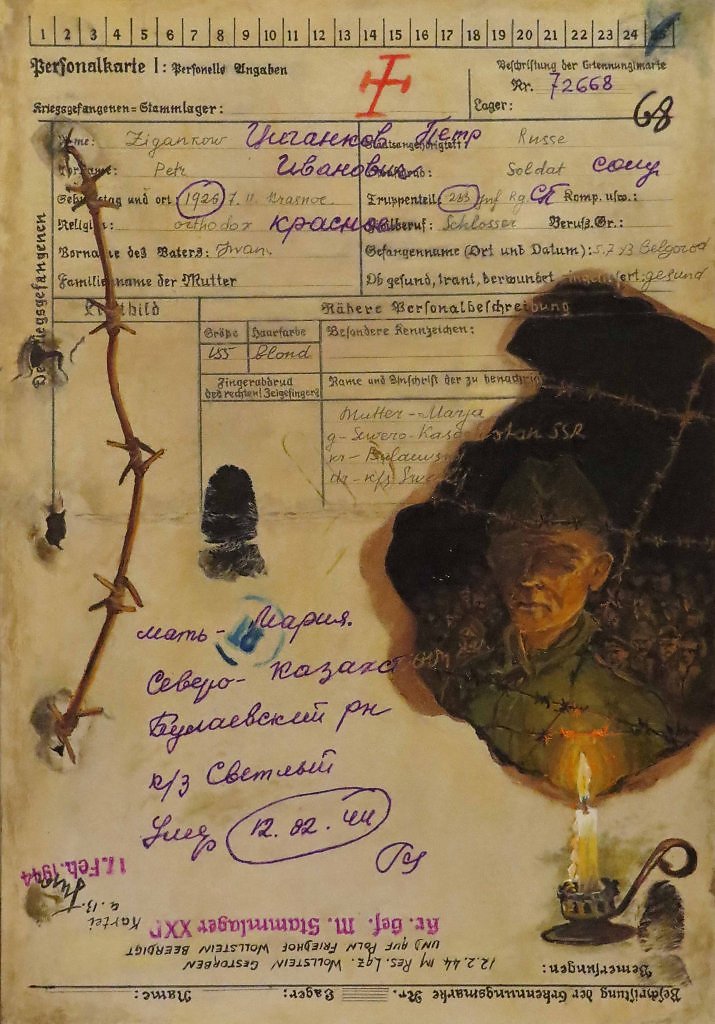 1 2 3 4 5 6 7 8 9 10 11 12 13 14 15 16 17 18 19 20 21 22 23 24 25
Personalkarte I: Personelle Angaben
Beschriftung der Erkennungsmarke
Nr. 72668
Kriegsgefangenen=Stammlager:
Lager:
68
Name: Zigankow Цыганков Петр
Staatsangehörigkeit: Russe
Vorname: Petr Иванович
Dienstgrad: Soldat солд
Geburtstag und ort: 1926 7. 11. Krasnoe.
Truppenteil: 283 Inf Rg. СП Komp. usw.:
Religion: orthodox красное
Zivilberuf: Schlosser Berufs.Gr.:
Vorname des Vaters: Iwan.
Gefangenname (Ort und Datum): 5.7 43 Belgorod
Familienname der Mutter
Ob gesund, krank, verwundet eingeliefert: gesund
Des Kriegsgefangenen
Lichtbild
Nähere Personalbeschreibung
Größe Haarfarbe Besondere Kennzeichen:
155 blond
Fingerabdruck
des rechten! Zeigefingers
Name und Anschrift der zu benachri
Mutter - Marja
g - Sewero-Kasachstan SSR
kr - Bulaewsk
dr - k/s Swe
мать - Мария.
Северо - Казахст
Булаевский рн
к/з Светлый
Умер 12.02.44
Beschriftung der Erkennungsmarke Nr. Lager: Name:
Bemerkungen:
12.2.44 im Res. Laz. Wollstein gestorben
und auf Poln Friedhof Wollstein beerdigt
Kr. Gef. M. Stammlager XXI
Kartei
17. Feb. 1944